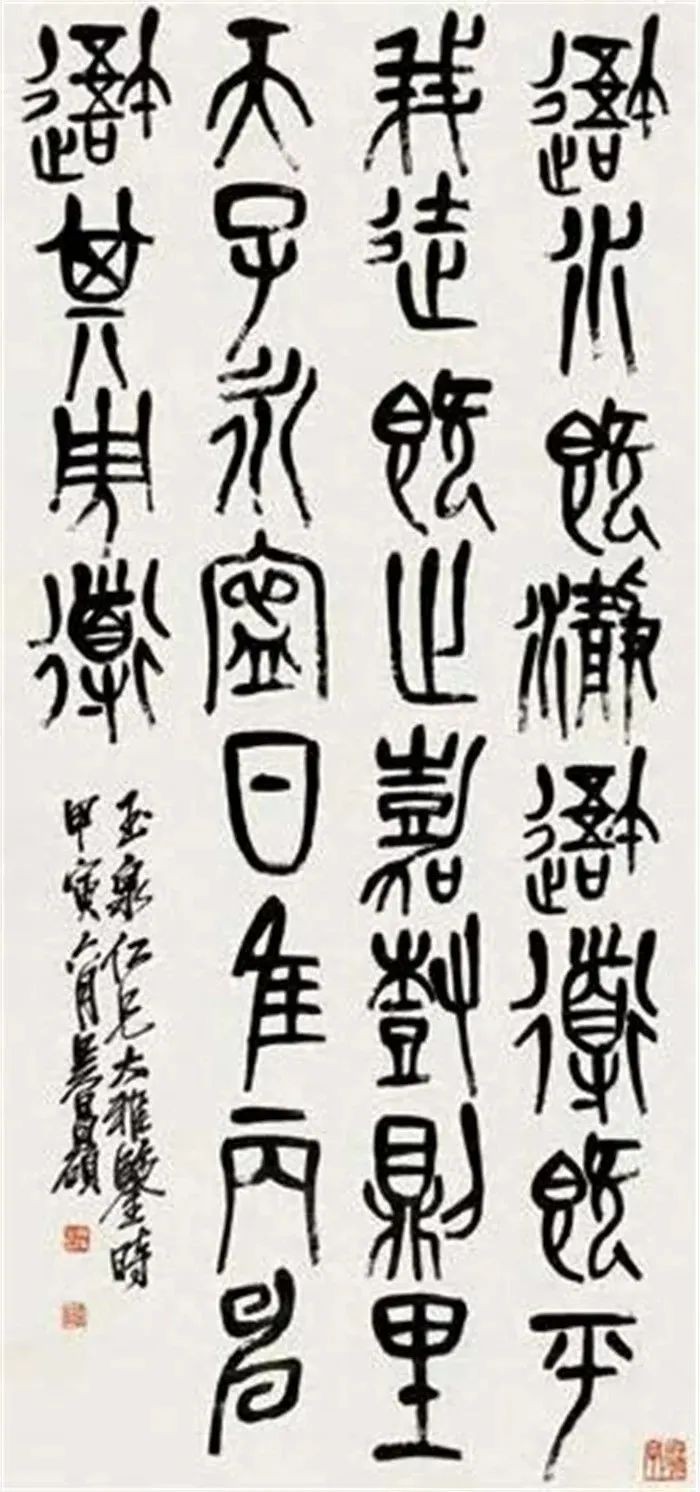 吾水既瀞吾導既平
我徒既止嘉樹則里
天子永寧日隹丙申
吾其用導
玉泉仁兄大雅鑒時
甲寅六月吳昌碩